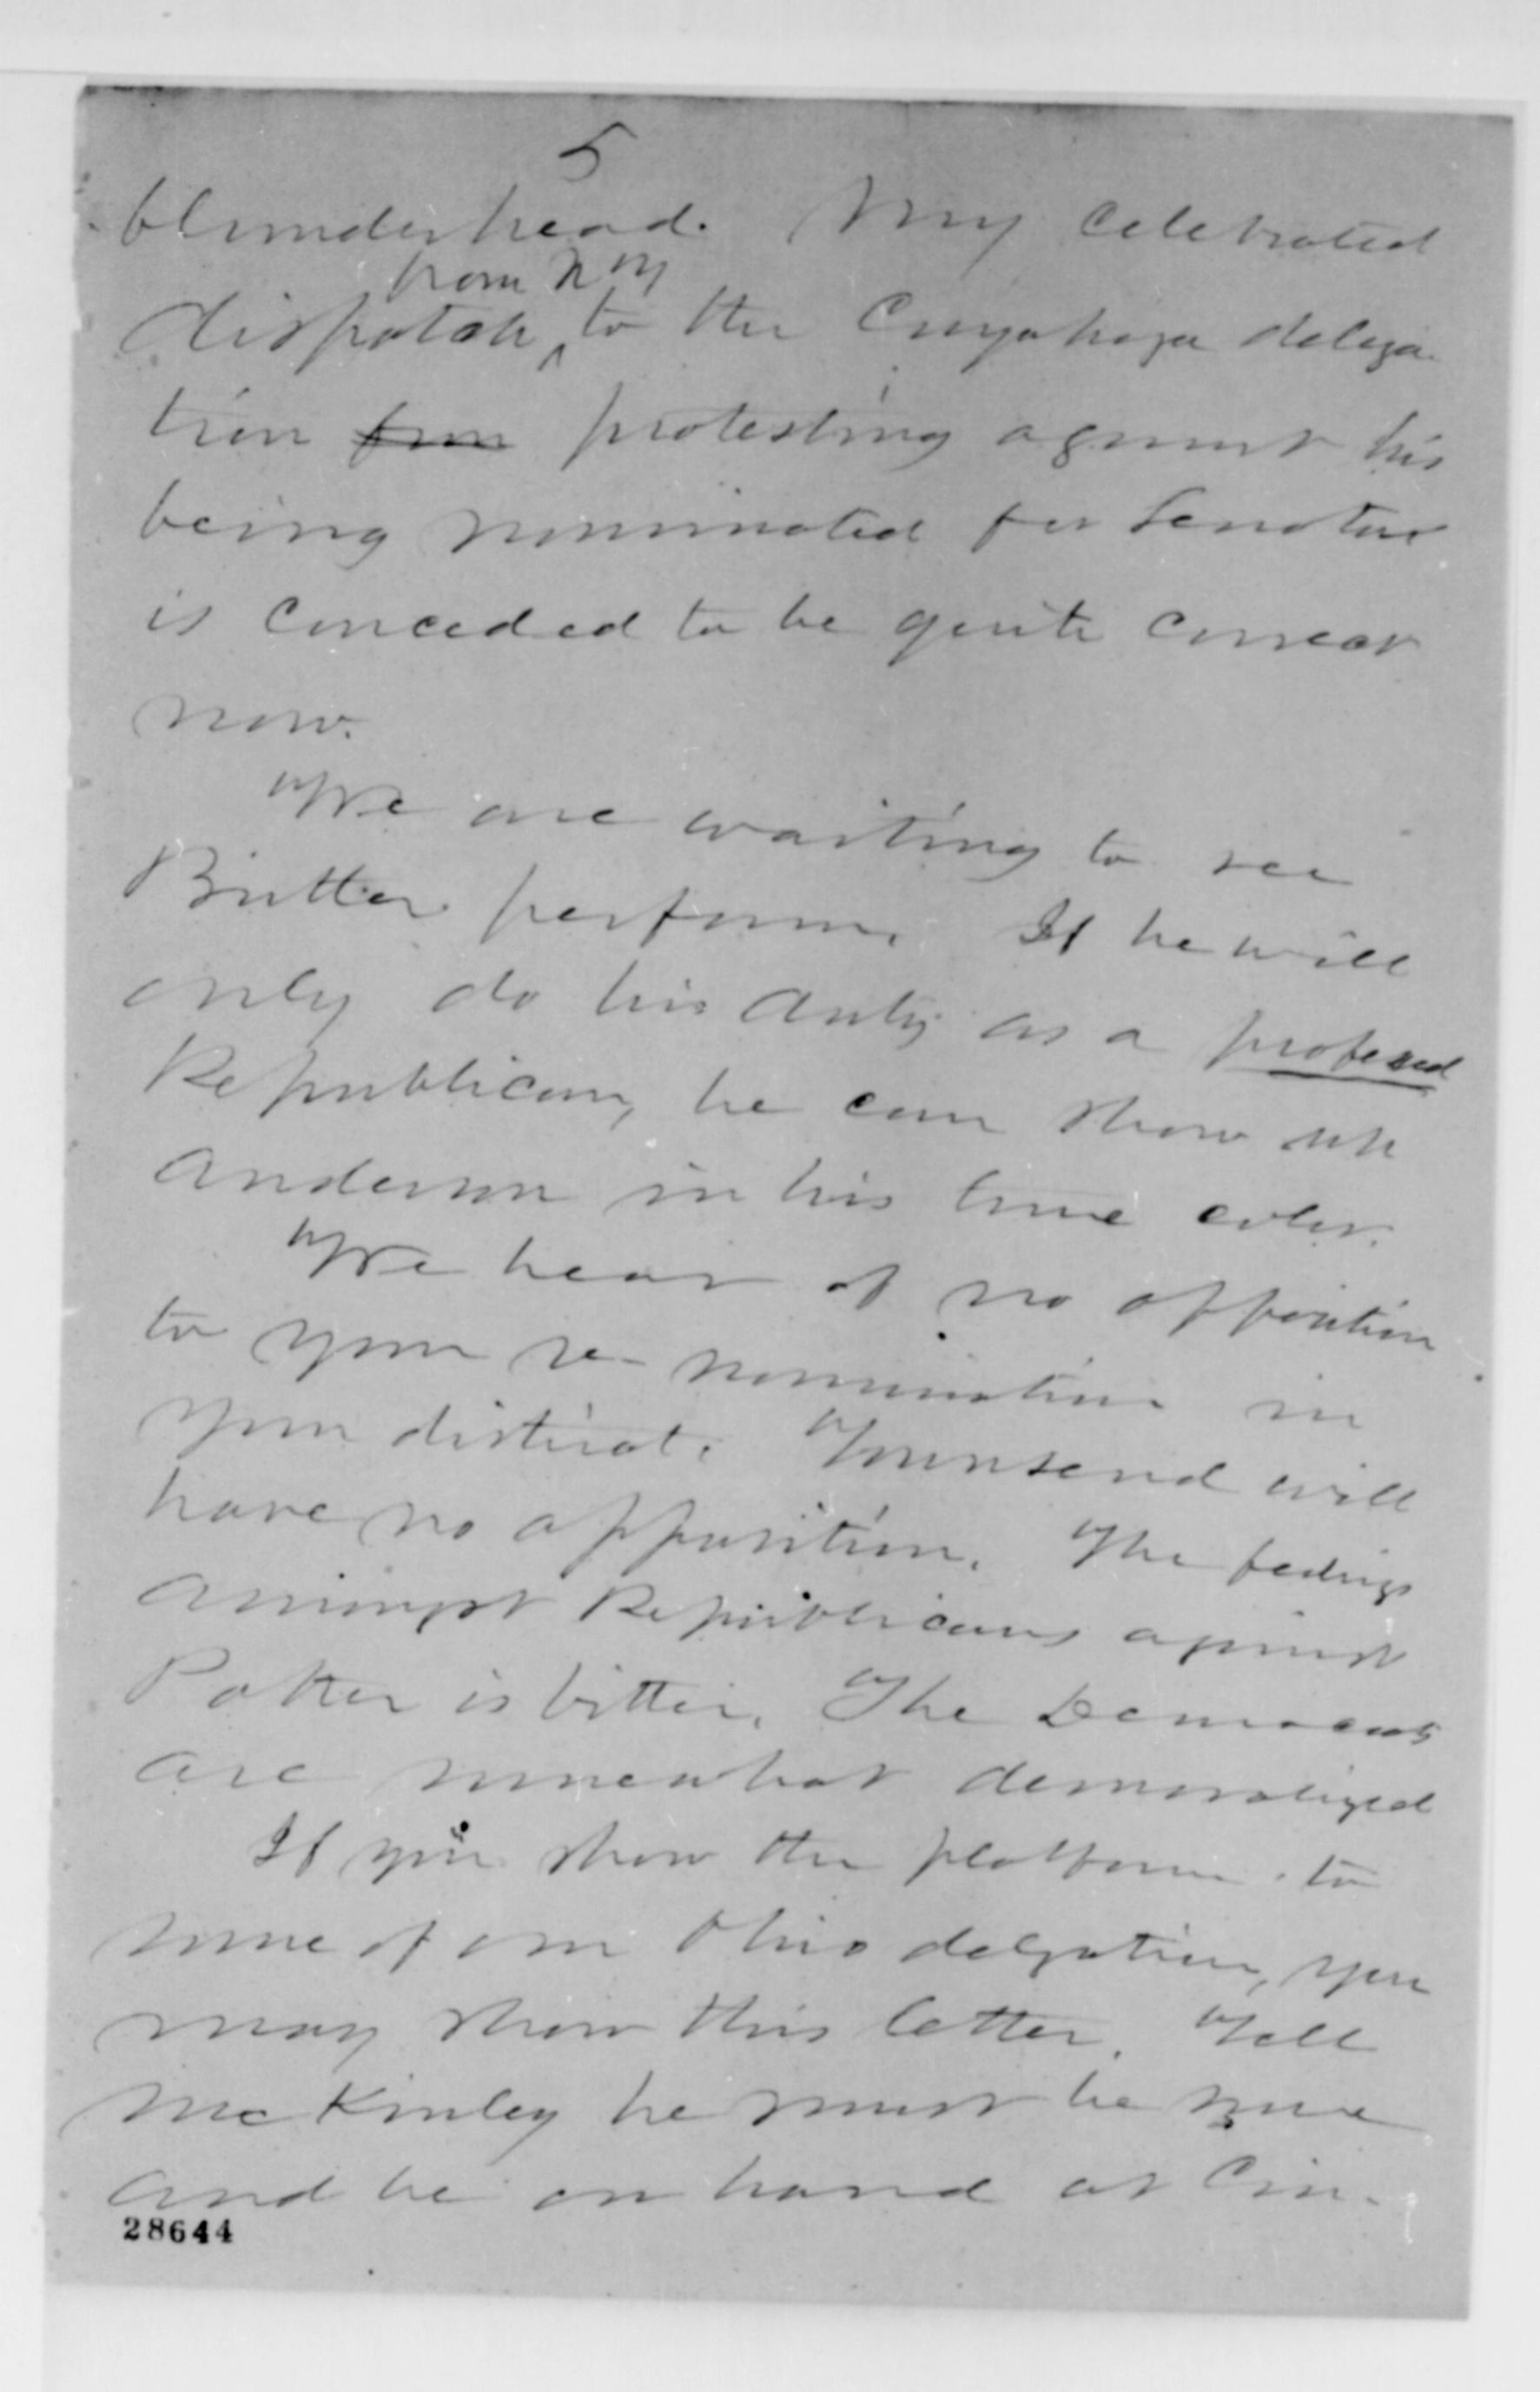 5
blunderhead. My celebrated
from N Y
dispatch to the Cuyahoga delega-
tion protesting against his
being nominated for Senator
is conceded to be quite correct
now.
We are waiting to see
Butler perform. If he will
only do his duty as a professed
Republican, he can show up
Anderson in his true color.
We hear of no opposition
to your re-nomination in
your district. Townsend will
have no opposition. The feelings
amongst Republicans against
Potter is bitter. The Democrats
are somewhat demoralized
If you show the platform to
some of our Ohio delegation, you
may show this letter. Tell
McKinley he must be sure
and be on hand at Cin-
28644